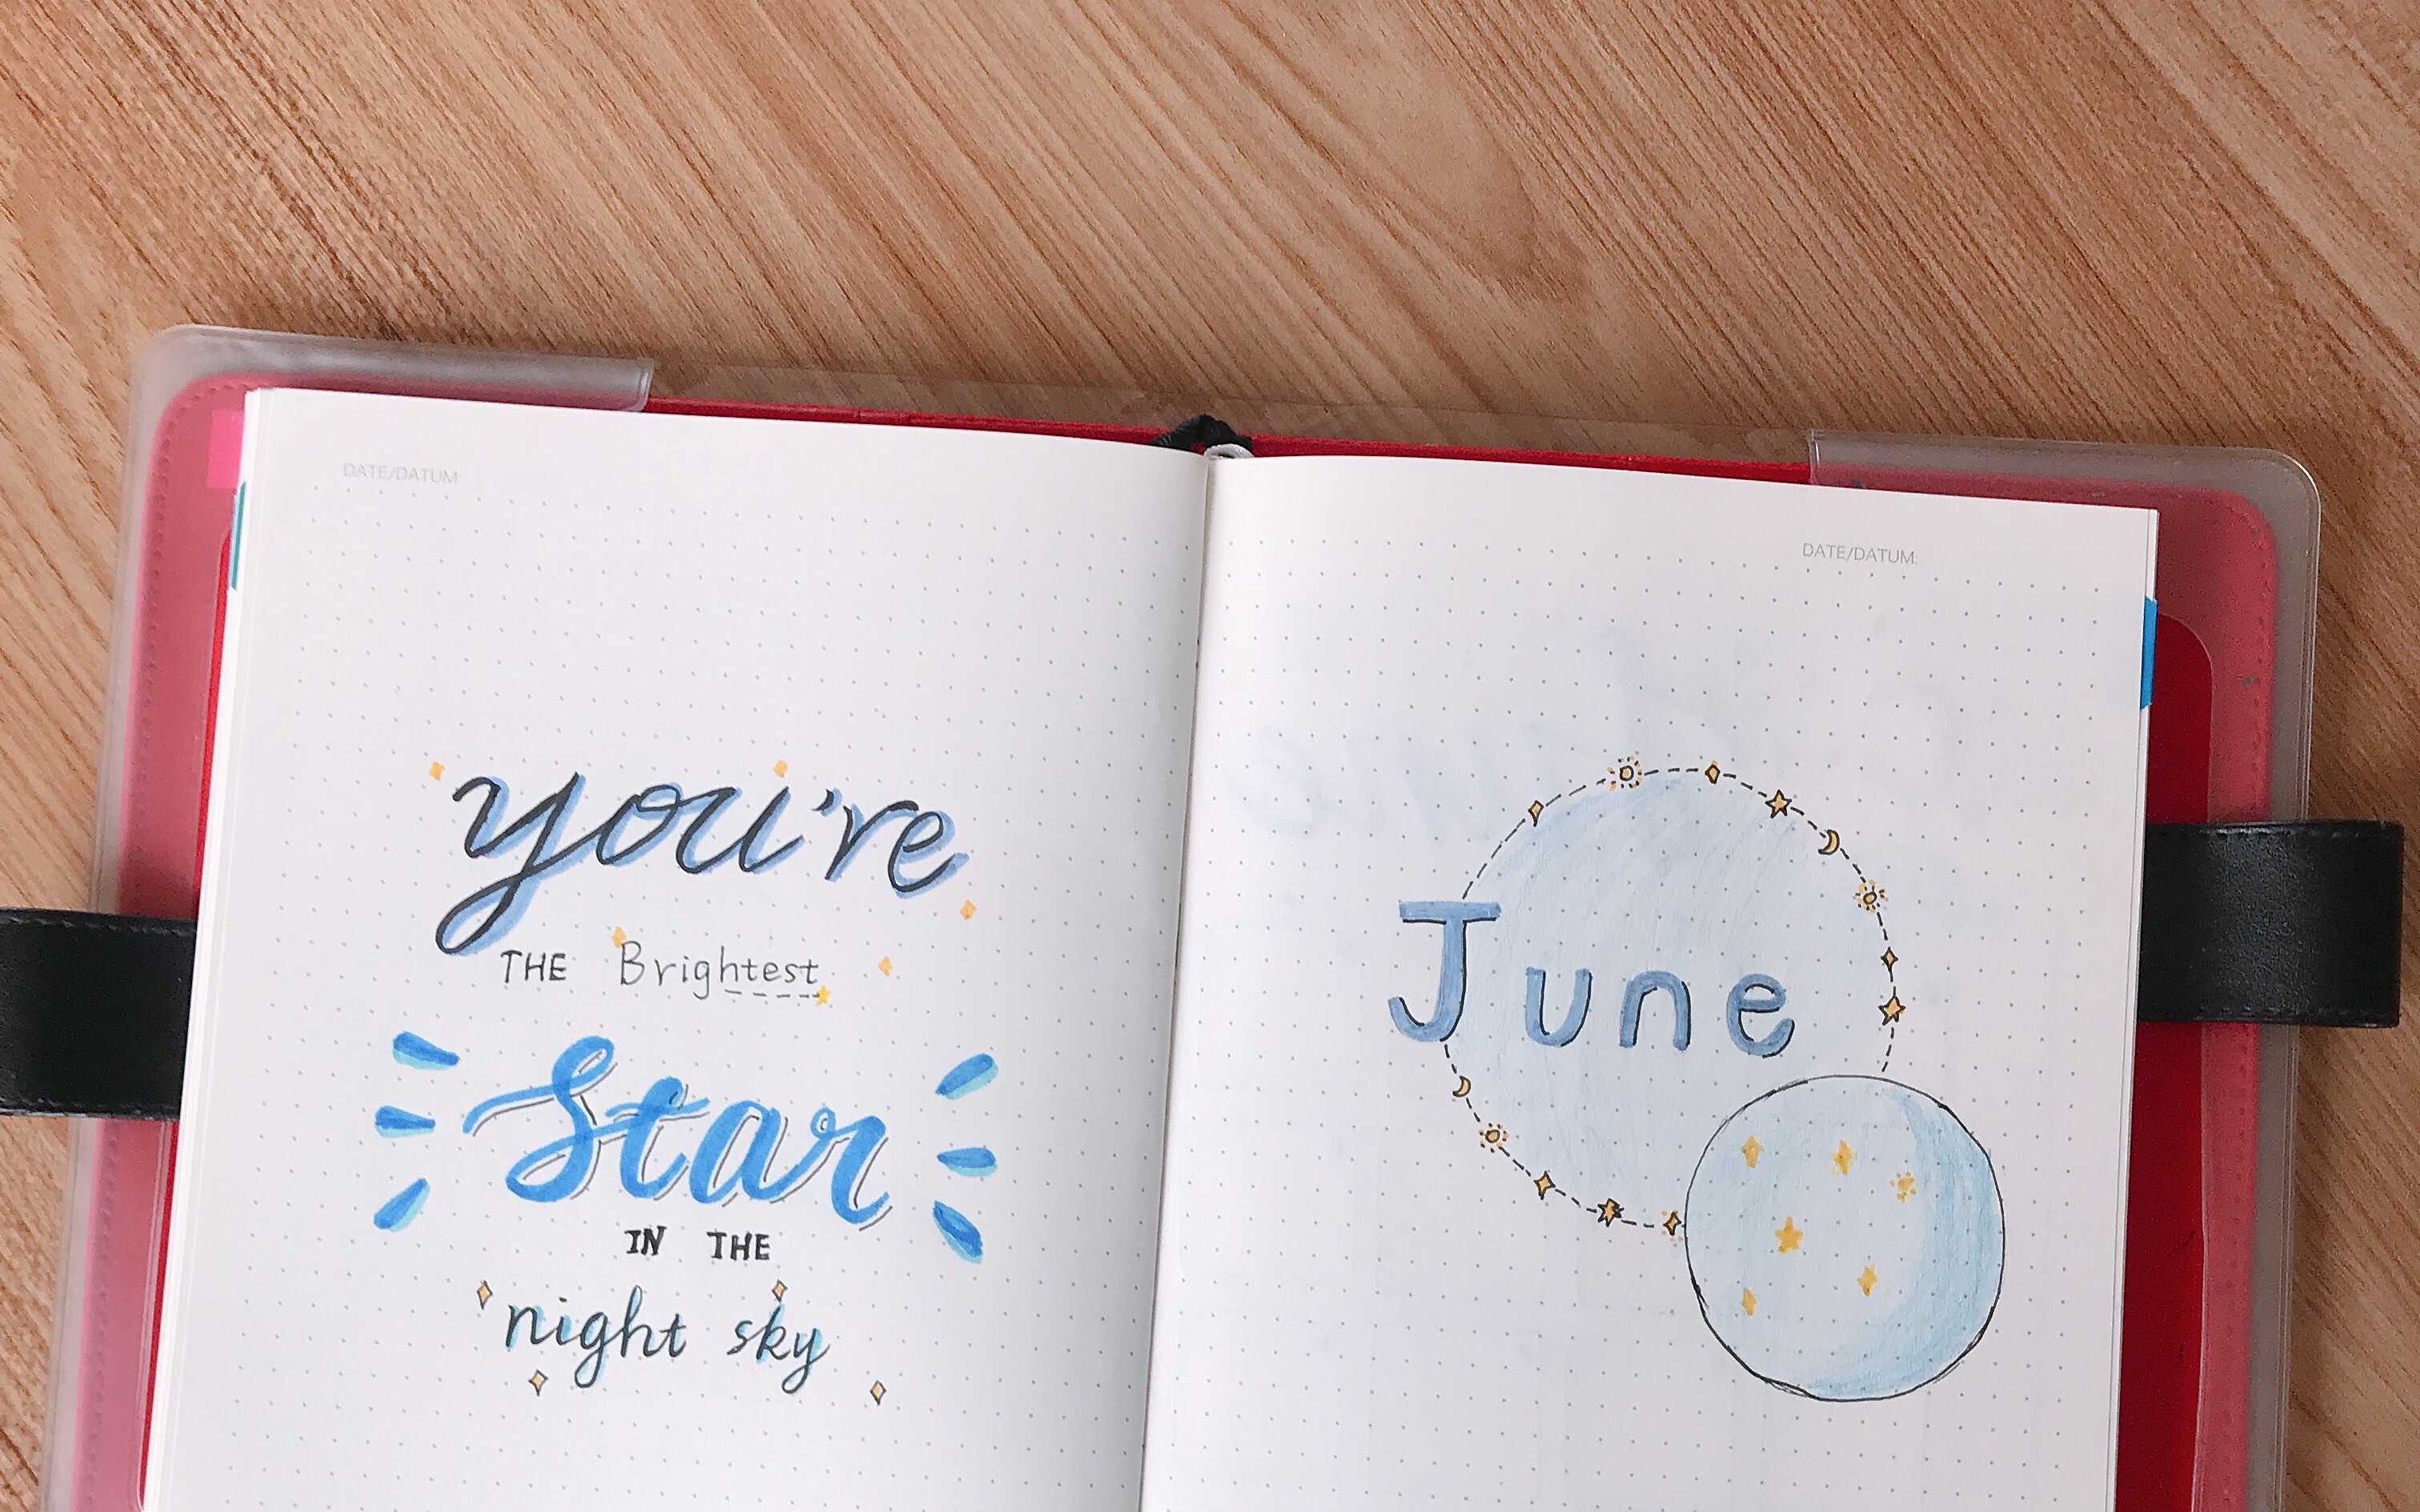 DATE/DATUM:
you're
THE Brightest
Star
IN THE
night sky
DATE/DATUM:
June